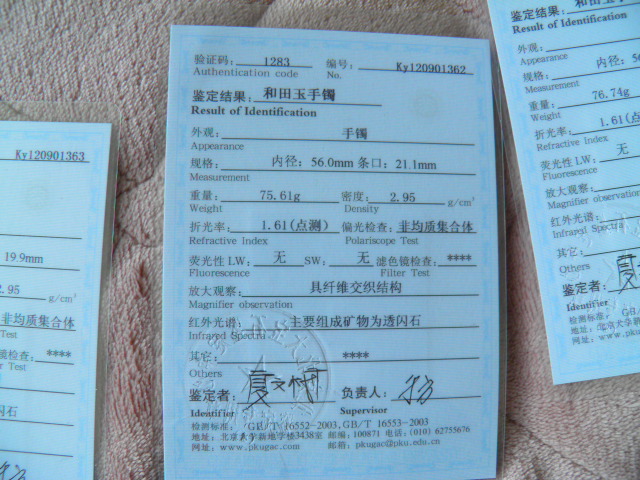 验证码: 1283 编号: Ky120901362
Authentication code No.
鉴定结果: 和田玉手镯
Result of Identification
外观: 手镯
Appearance
规格: 内径: 56.0mm 条口: 21.1mm
Measurement
重量: 75.61g 密度: 2.95 g/cm³
Weight Density
折光率: 1.61(点测) 偏光检查: 非均质集合体
Refractive Index Polariscope Test
荧光性 LW: 无 SW: 无 滤色镜检查: ****
Fluorescence Filter Test
放大观察: 具纤维交织结构
Magnifier observation
红外光谱: 主要组成矿物为透闪石
Infrared Spectra
其它: ****
Others
鉴定者: 负责人:
Identifier Supervisor
检测标准: GB/T 16552-2003,GB/T 16553-2003
地址: 北京大学新地学楼3438室 邮编: 100871 电话: (010) 62755676
网址: www.pkugac.com pkugac@pku.edu.cn
Ky120901363
19.9mm
2.95 g/cm³
非均质集合体
滤色镜检查: ****
Filter Test
闪石
鉴定结果: 和田玉手镯
Result of Identification
外观:
Appearance
规格: 内径: 56
Measurement
重量: 76.74g
Weight
折光率: 1.61(点
Refractive Index
荧光性 LW: 无
Fluorescence
放大观察:
Magnifier observation
红外光谱:
Infrared Spectra
其它:
Others
鉴定者:
Identifier
检测标准: GB/
地址: 北京大学新
网址: www.p